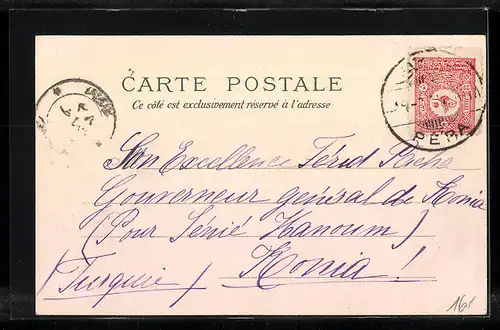 CARTE POSTALE
Ce côté est exclusivement réservé à l'adresse
PÉRA
Son Excellence Férid Pacha
Gouverneur général de Konia
(Pour Sénié Hanoum)
(Turquie) Konia!